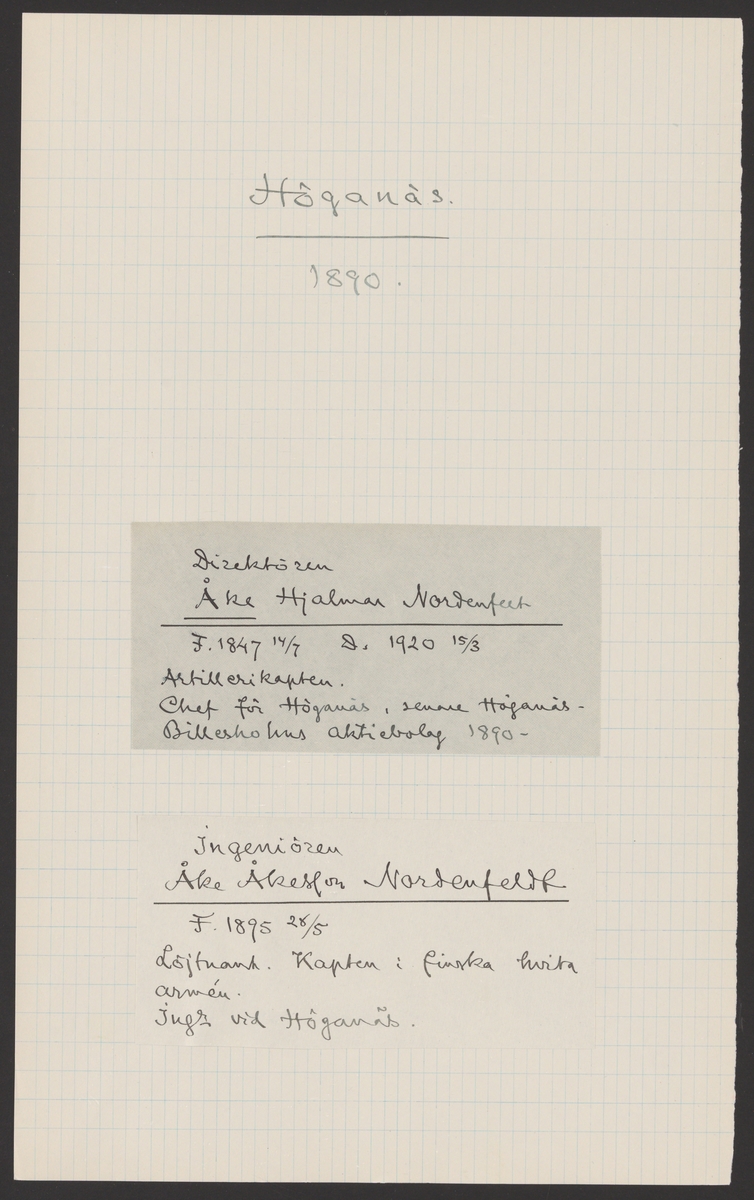 Höganäs.
1890.
Direktören
Åke Hjalmar Nordenfelt
F. 1847 14/7 D. 1920 15/3
Artillerikapten.
Chef för Höganäs, senare Höganäs-
Billesholms aktiebolag 1890-
Ingeniören
Åke Åkesson Nordenfeldt
F. 1895 28/5
Löjtnant. Kapten i finska hvita
armén.
Ingr vid Höganäs.